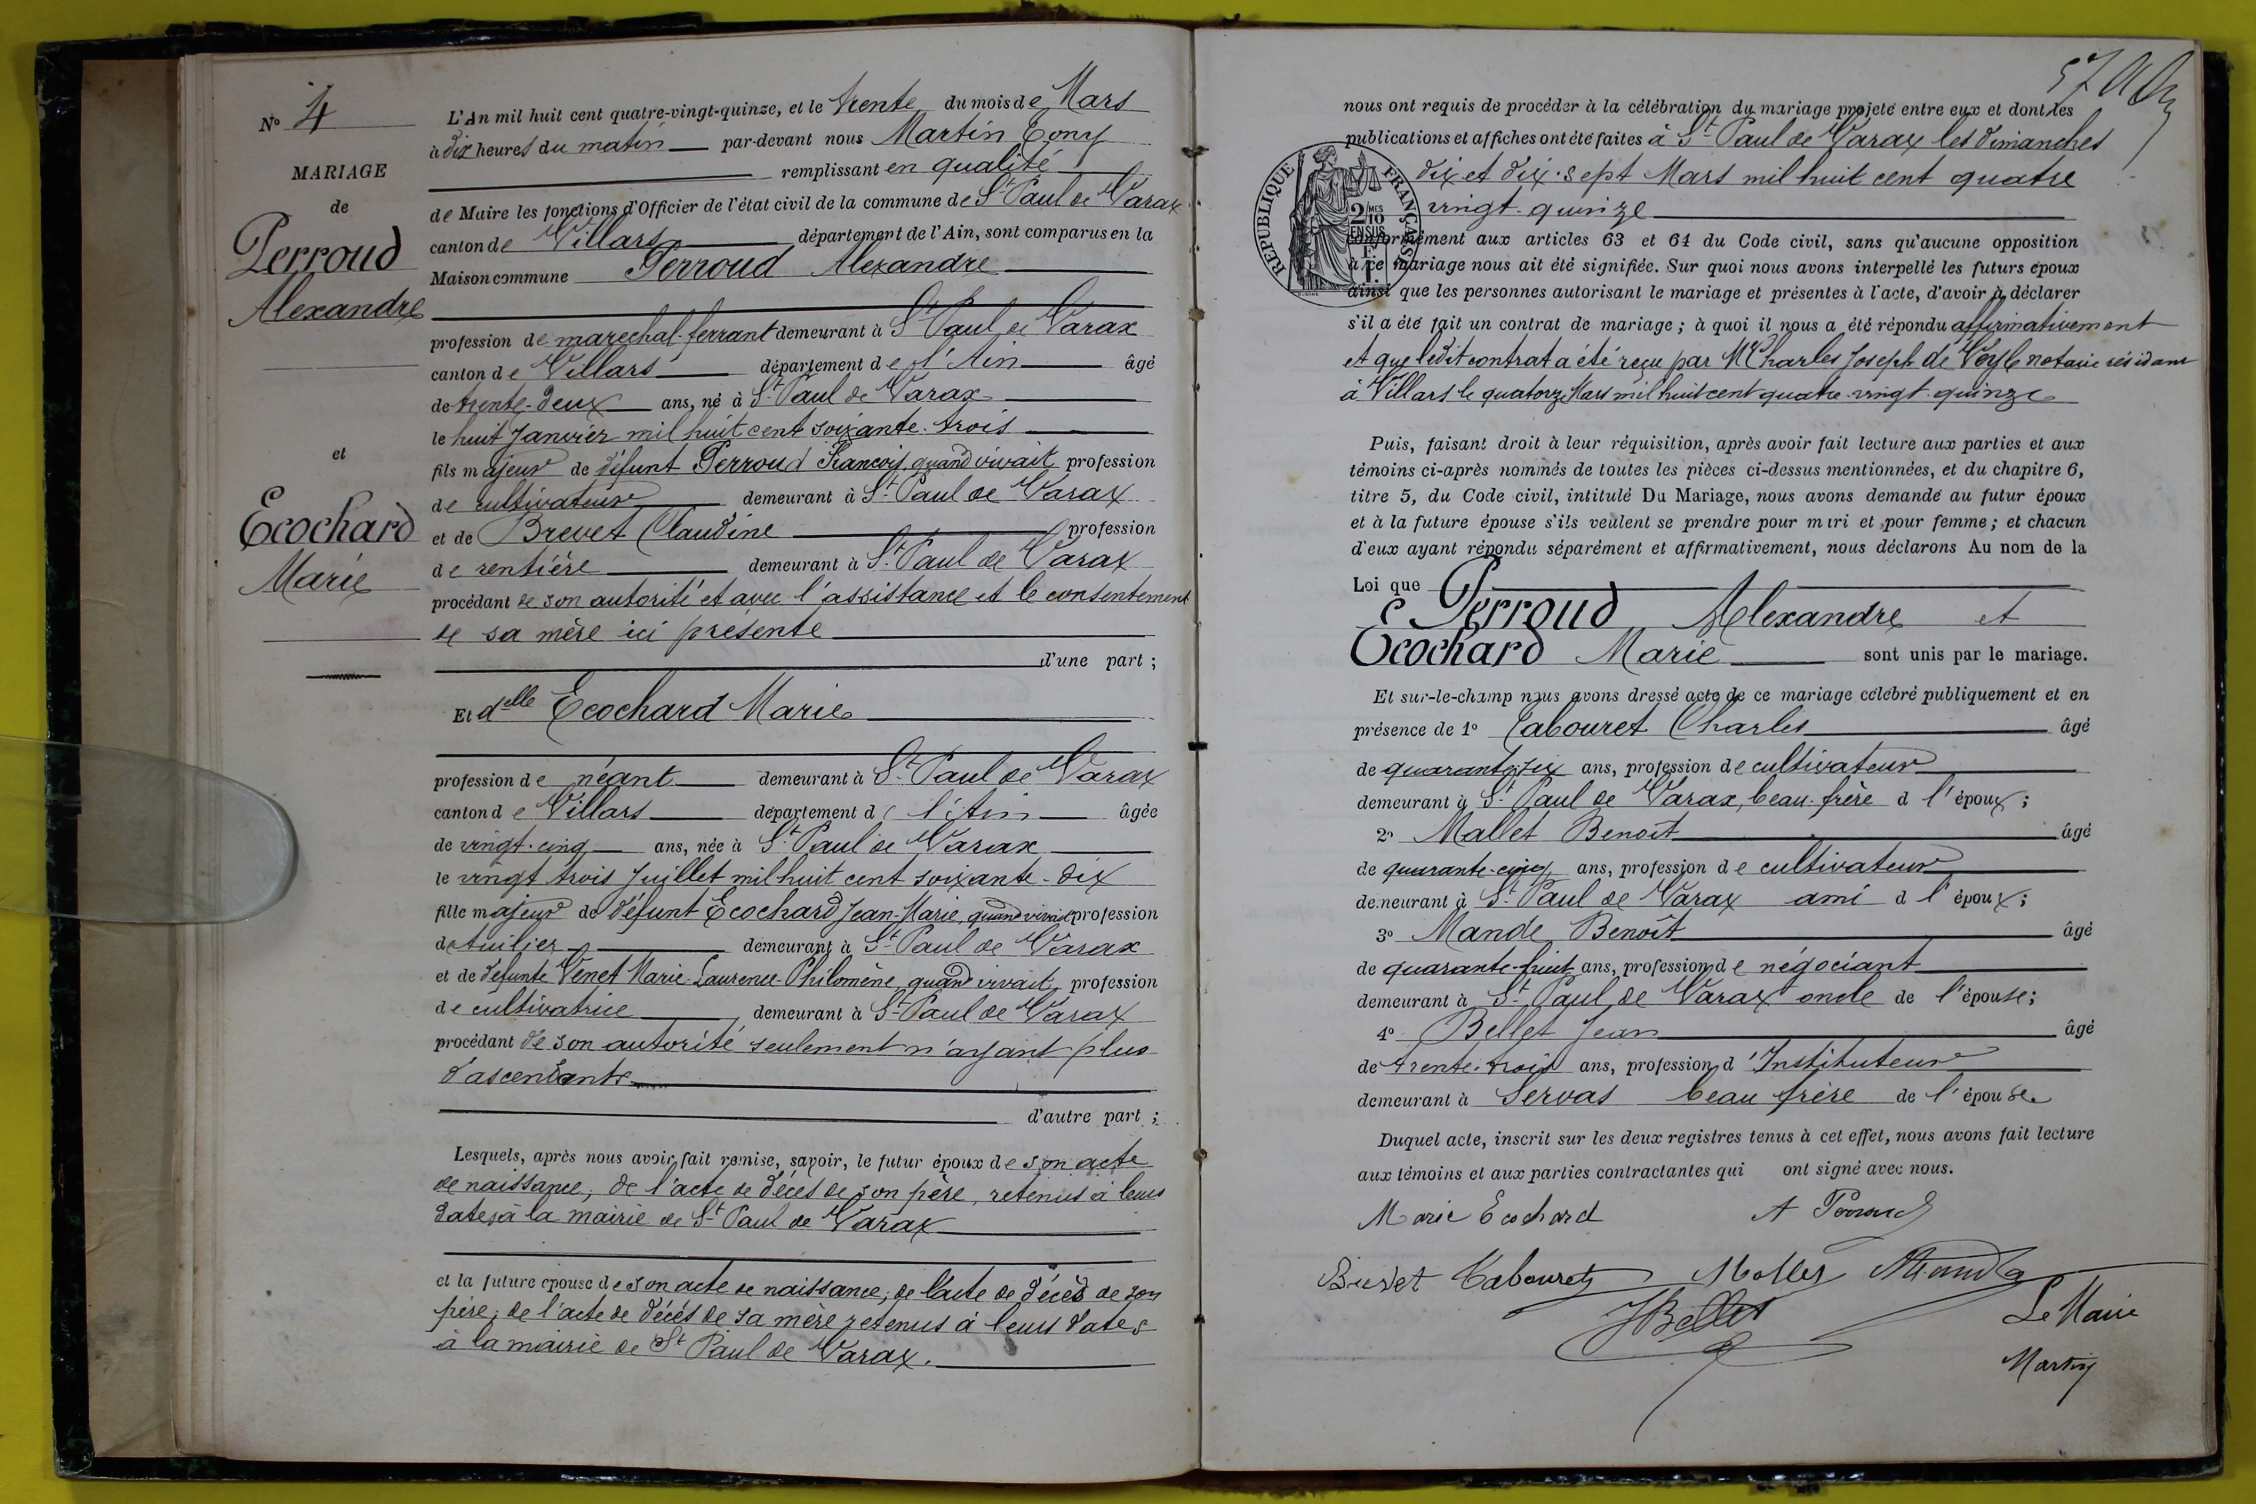 N° 4
MARIAGE
de
Perroud
Alexandre
et
Ecochard
Marie
L'An mil huit cent quatre-vingt-quinze, et le trente du mois de Mars
à dix heures du matin par-devant nous Martin Tony
remplissant en qualité
de Maire les fonctions d'Officier de l'état civil de la commune de St Paul de Varax
canton de Villars département de l'Ain, sont comparus en la
Maison commune Perroud Alexandre
profession de marechal-ferrant demeurant à St Paul de Varax
canton de Villars département de l'Ain âgé
de trente-deux ans, né à St Paul de Varax
le huit Janvier mil huit cent soixante-trois
fils majeur de défunt Perroud François, quand vivait, profession
de cultivateur demeurant à St Paul de Varax
et de Brevet Claudine profession
de rentière demeurant à St Paul de Varax
procédant de son autorité et avec l'assistance et le consentement
de sa mère ici présente
d'une part ;
Et delle Ecochard Marie
profession de néant demeurant à St Paul de Varax
canton de Villars département de l'Ain âgée
de vingt-cinq ans, née à St Paul de Varax
le vingt trois Juillet mil huit cent soixante-dix
fille majeure de défunt Ecochard Jean-Marie, quand vivait profession
de tuilier demeurant à St Paul de Varax
et de défunte Venet Marie-Laurence-Philomène, quand vivait, profession
de cultivatrice demeurant à St Paul de Varax
procédant de son autorité seulement n'ayant plus
d'ascendants
d'autre part ;
Lesquels, après nous avoir fait remise, savoir, le futur époux de son acte
de naissance, de l'acte de décès de son père, retenus à leurs
dates à la mairie de St Paul de Varax
et la future épouse de son acte de naissance, de l'acte de décès de son
père, de l'acte de décès de sa mère retenus à leurs dates
à la mairie de St Paul de Varax.
nous ont requis de procéder à la célébration du mariage projeté entre eux et dont les
publications et affiches ont été faites à St Paul de Varax les dimanches
dix et dix-sept Mars mil huit cent quatre
vingt-quinze
RÉPUBLIQUE FRANÇAISE
2 MES
10
EN SUS
conformément aux articles 63 et 64 du Code civil, sans qu'aucune opposition
à ce mariage nous ait été signifiée. Sur quoi nous avons interpellé les futurs époux
ainsi que les personnes autorisant le mariage et présentes à l'acte, d'avoir à déclarer
s'il a été fait un contrat de mariage ; à quoi il nous a été répondu affirmativement
et que ledit contrat a été reçu par Me Charles Joseph de Veyle notaire résidant
à Villars le quatorze Mars mil huit cent quatre-vingt-quinze
Puis, faisant droit à leur réquisition, après avoir fait lecture aux parties et aux
témoins ci-après nommés de toutes les pièces ci-dessus mentionnées, et du chapitre 6,
titre 5, du Code civil, intitulé Du Mariage, nous avons demandé au futur époux
et à la future épouse s'ils veulent se prendre pour mari et pour femme ; et chacun
d'eux ayant répondu séparément et affirmativement, nous déclarons Au nom de la
Loi que
Perroud Alexandre et
Ecochard Marie sont unis par le mariage.
Et sur-le-champ nous avons dressé acte de ce mariage célébré publiquement et en
présence de 1° Tabouret Charles âgé
de quarante-six ans, profession de cultivateur
demeurant à St Paul de Varax, beau-frère d l'époux ;
2° Mallet Benoît âgé
de quarante-cinq ans, profession de cultivateur
demeurant à St Paul de Varax ami d l'époux ;
3° Mande Benoît âgé
de quarante-huit ans, profession de négociant
demeurant à St Paul de Varax oncle de l'épouse ;
4° Bellet Jean âgé
de trente-trois ans, profession d'Instituteur
demeurant à Servas beau frère de l'épouse
Duquel acte, inscrit sur les deux registres tenus à cet effet, nous avons fait lecture
aux témoins et aux parties contractantes qui ont signé avec nous.
Marie Ecochard A Perroud
Brevet Tabouret Mallet Mande
JBellet
Le Maire
Martin